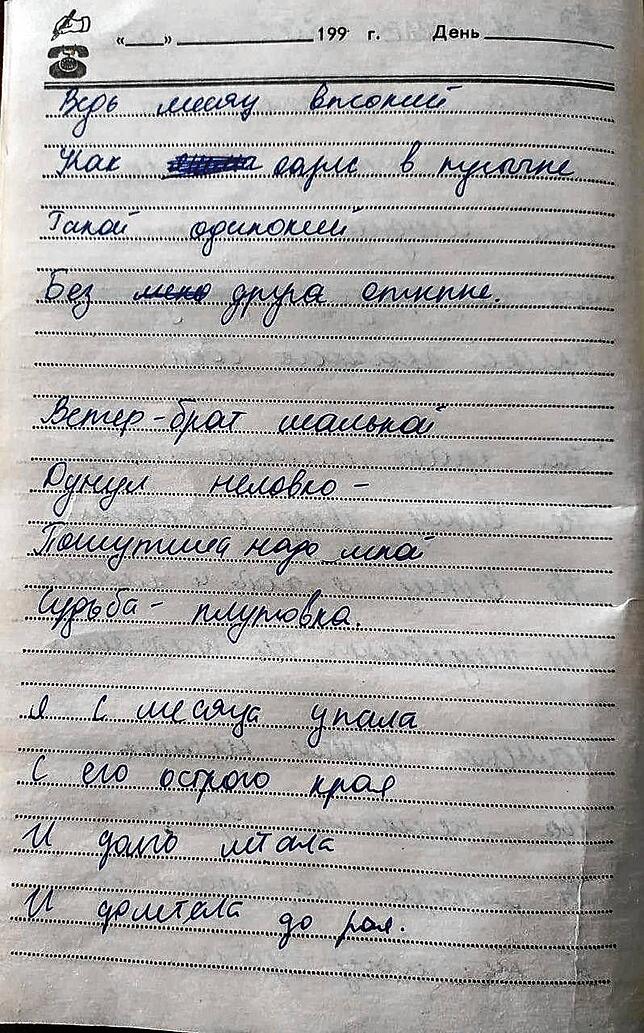 «___» ____________ 199 г. День ____________
Ведь месяц высокий
Как оазис в пустыне
Такой одинокий
Без друга отныне.
Ветер-брат шальной
Дунул неловко -
Пошутила надо мной
Судьба - плутовка.
Я с месяца упала
С его острого края
И долго летала
И долетела до рая.